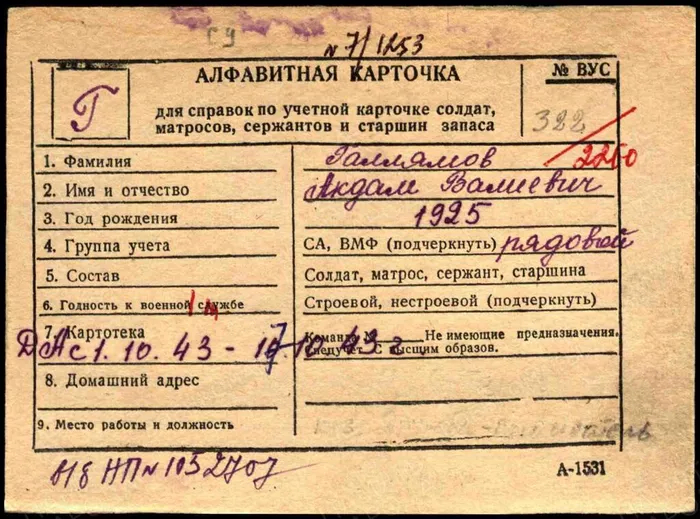 СУ
№ 7/1253
Г
АЛФАВИТНАЯ КАРТОЧКА
№ ВУС
для справок по учетной карточке солдат,
матросов, сержантов и старшин запаса
322
2250
1. Фамилия Галлямов
2. Имя и отчество Акдам Валиевич
3. Год рождения 1925
4. Группа учета СА, ВМФ (подчеркнуть) рядовой
5. Состав Солдат, матрос, сержант, старшина
6. Годность к военной службе Строевой, нестроевой (подчеркнуть)
7. Картотека Команда № Не имеющие предназначения.
Спецучет. С высшим образов.
ДАс 1.10.43 - 10 43 г
8. Домашний адрес
9. Место работы и должность
НП № 1032707
А-1531